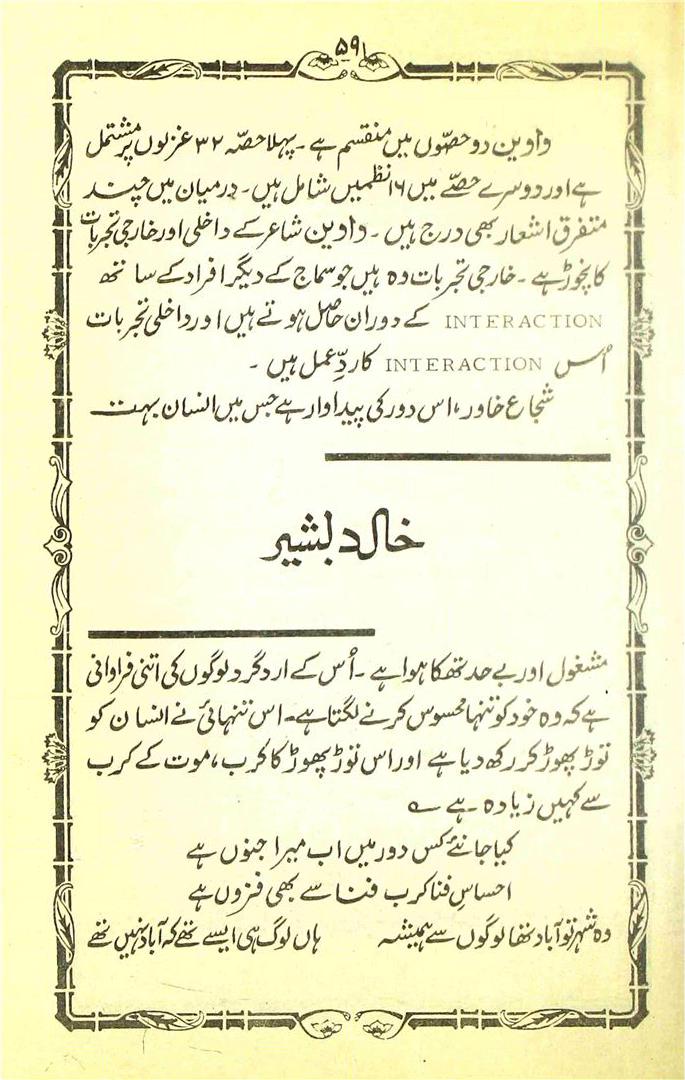 ۵۹
واوین دو حصّوں میں منقسم ہے ۔ پہلا حصّہ ۳۲ غزلوں پر مشتمل
ہے اور دوسرے حصّے میں ۱۶ نظمیں شامل ہیں ۔ درمیان میں چند
متفرق اشعار بھی درج ہیں ۔ واوین شاعر کے داخلی اور خارجی تجربات
کا نچوڑ ہے ۔ خارجی تجربات وہ ہیں جو سماج کے دیگر افراد کے ساتھ
INTERACTION کے دوران حاصل ہوتے ہیں اور داخلی تجربات
اُس INTERACTION کا ردِّ عمل ہیں ۔
شجاع خاور، اس دور کی پیداوار ہے جس میں انسان بہت
خالد بشیر
مشغول اور بے حد تھکا ہوا ہے ۔ اُس کے ارد گرد لوگوں کی اتنی فراوانی
ہے کہ وہ خود کو تنہا محسوس کرنے لگتا ہے ۔ اس تنہائی نے انسان کو
توڑ پھوڑ کر رکھ دیا ہے اور اس توڑ پھوڑ کا کرب، موت کے کرب
سے کہیں زیادہ ہے ؎
کیا جانئے کس دور میں اب میرا جنوں ہے
احساسِ فنا کرب فنا سے بھی فزوں ہے
وہ شہر تو آباد تھا لوگوں سے ہمیشہ ہاں لوگ ہی ایسے تھے کہ آباد نہیں تھے